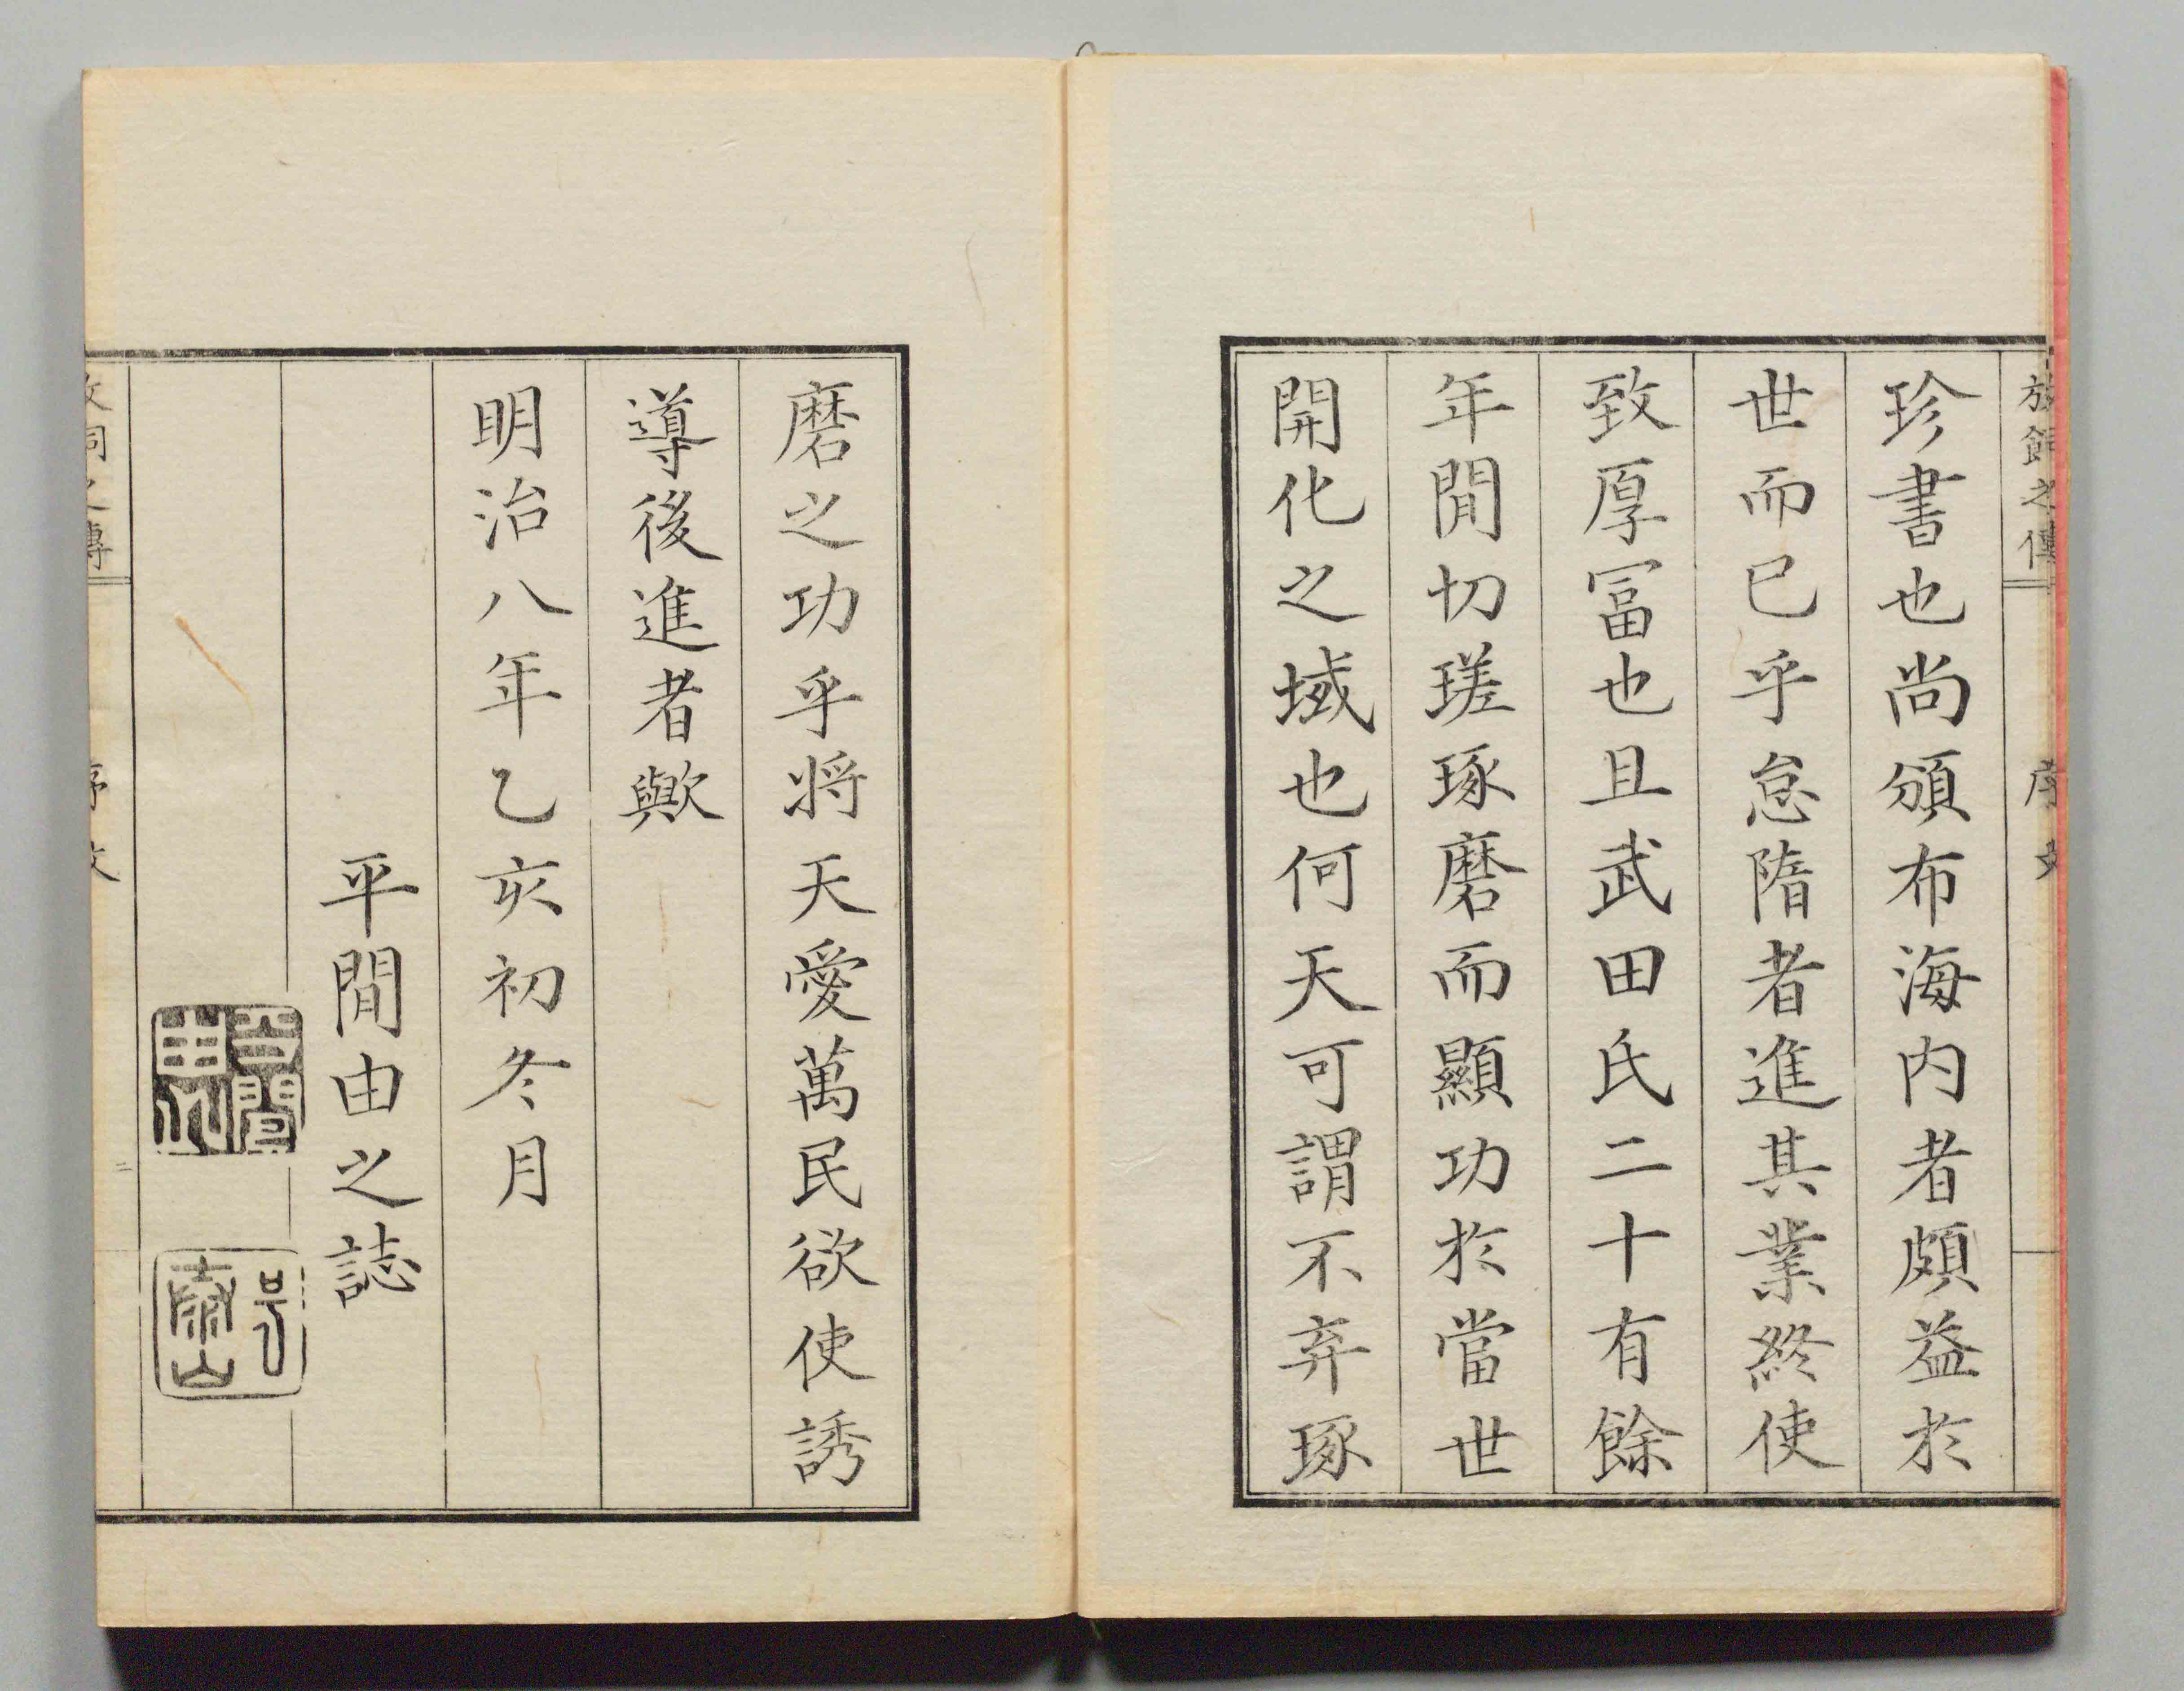 放飼之傳
序文
珍書也尚頒布海内者頗益於
世而已乎怠隋者進其業終使
致厚冨也且武田氏二十有餘
年間切瑳琢磨而顯功於當世
開化之域也何天可謂不弃琢
磨之功乎将天愛萬民欲使誘
導後進者歟
明治八年乙亥初冬月
平間由之誌
平間由之
号泰山
序文
二